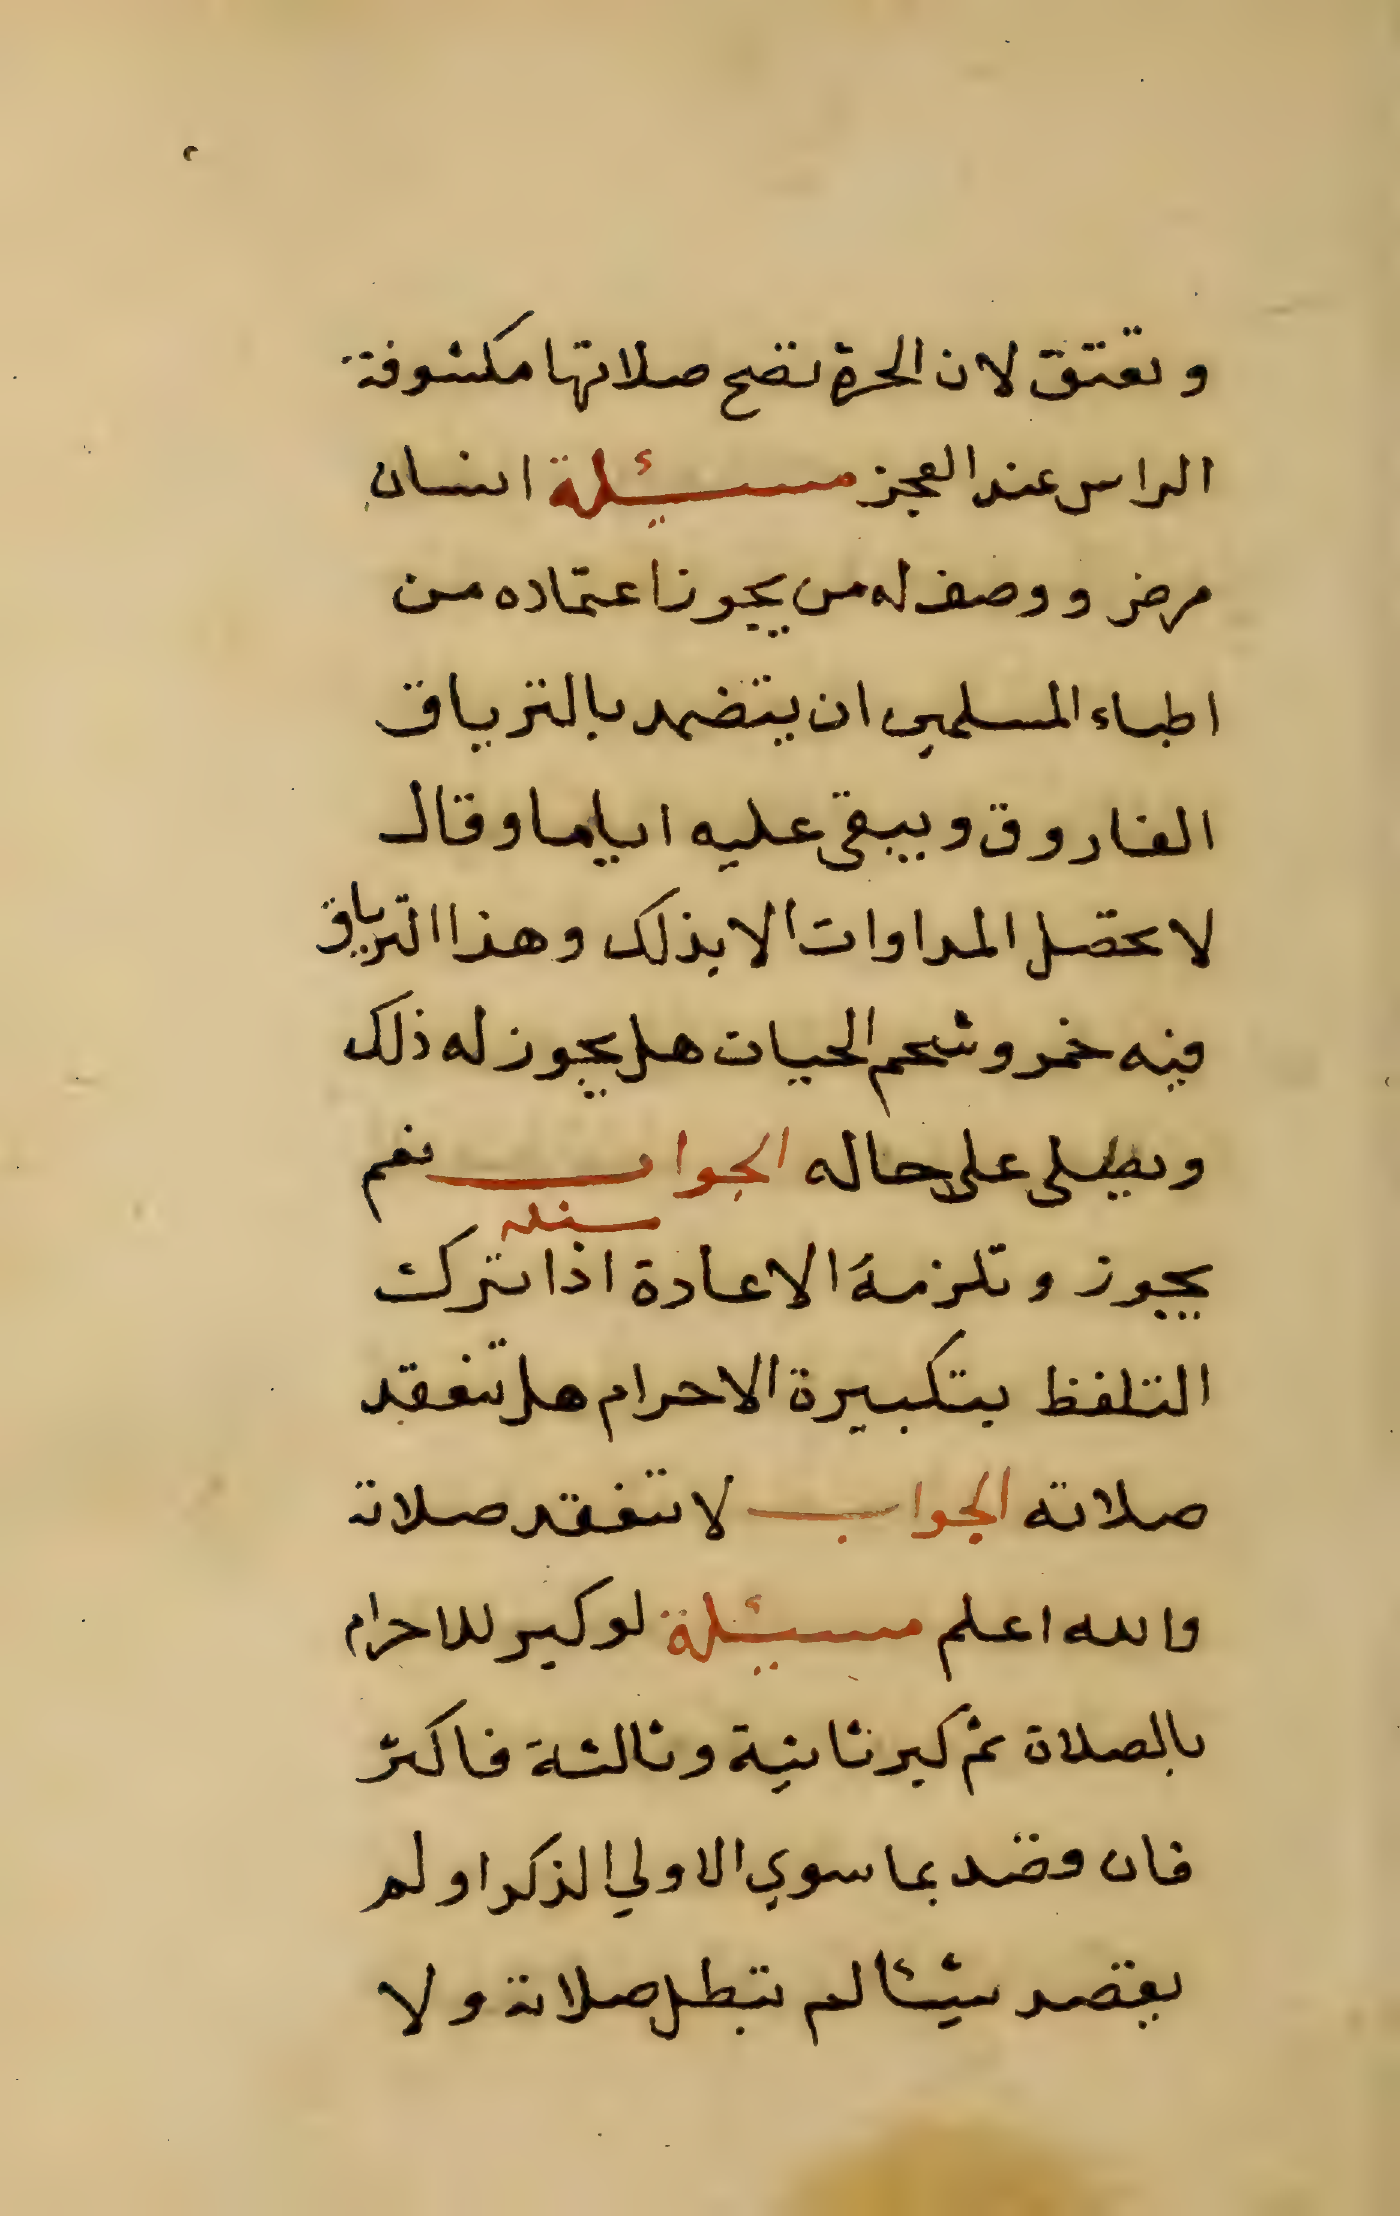 وتعتق لان الحرة تصح صلاتها مكشوفة
الراس عند العجز مسئلة انسان
مرض ووصف له من يجوز اعتماده من
اطباء المسلمين ان يتضمد بالترياق
الفاروق ويبقى عليه اياما وقال
لا تحصل المداوات الا بذلك وهذا الترياق
فيه خمر وشحم الحيات هل يجوز له ذلك
ويصلى على حاله الجواب نعم
مسئلة
يجوز وتلزمه الاعادة اذا ترك
التلفظ بتكبيرة الاحرام هل تنعقد
صلاته الجواب لا تنعقد صلاته
والله اعلم مسئلة لو كبر للاحرام
بالصلاة ثم كبر ثانية وثالثة فاكثر
فان قصد بما سوي الاولي الذكر او لم
يقصد شيئا لم تبطل صلاته ولا